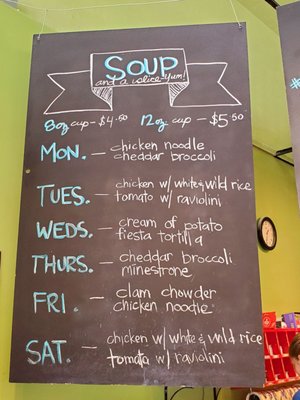 SOUP
and a slice-yum!
8oz cup - $4.50 12oz cup - $5.50
MON. - chicken noodle
cheddar broccoli
TUES. - chicken w/ white & wild rice
tomato w/ raviolini
WEDS. - cream of potato
fiesta tortilla
THURS. - cheddar broccoli
minestrone
FRI. - clam chowder
chicken noodle
SAT. - chicken w/ white & wild rice
tomato w/ raviolini